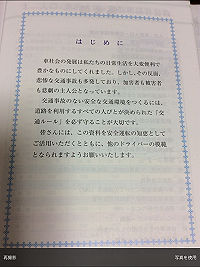 はじめに
車社会の発展は私たちの日常生活を大変便利で
豊かなものにしてくれました。しかし、その反面、
悲惨な交通事故も多発しており、加害者も被害者
も悲劇の主人公となっています。
交通事故のない安全な交通環境をつくるには、
道路を利用するすべての人びとが決められた「交
通ルール」を必ず守ることが大切です。
皆さんには、この資料を安全運転の知恵として
ご活用いただくとともに、他のドライバーの模範
となられますようお願いいたします。
再撮影
写真を使用